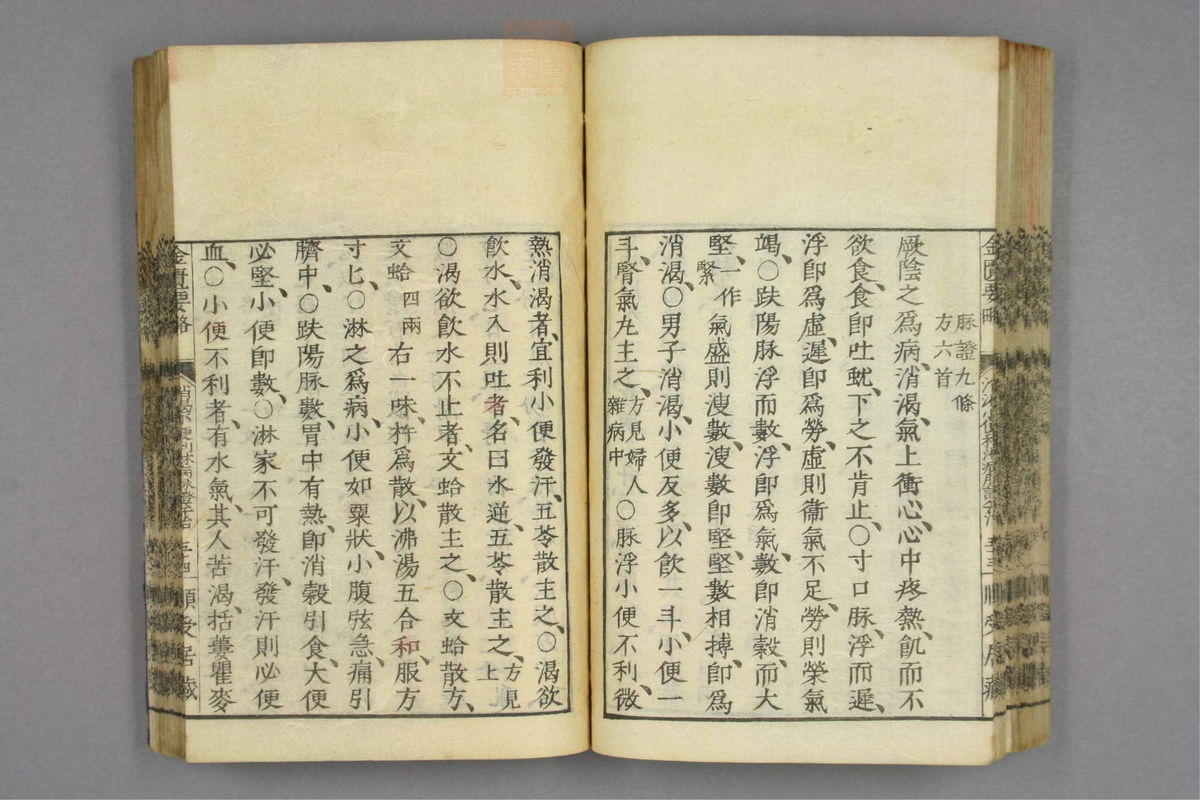 脉證九條
方六首
厥陰之為病、消渴、氣上衝心、心中疼熱、飢而不
欲食、食即吐蚘、下之不肯止、○寸口脉、浮而遲、
浮即為虛、遲即為勞、虛則衞氣不足、勞則榮氣
竭、○趺陽脉浮而數、浮即為氣、數即消穀、而大
堅、一作緊氣盛則溲數、溲數即堅、堅數相搏、即為
消渴、○男子消渴、小便反多、以飲一斗、小便一
斗、腎氣丸主之、方見婦人雜病中○脉浮小便不利、微
熱消渴者、宜利小便發汗、五苓散主之、○渴欲
飲水、水入則吐者、名曰水逆、五苓散主之、方見上
○渴欲飲水不止者、文蛤散主之、○文蛤散方、
文蛤四兩右一味、杵為散、以沸湯五合和、服方
寸匕、○淋之為病、小便如粟狀、小腹弦急、痛引
臍中、○趺陽脉數、胃中有熱、即消穀引食、大便
必堅、小便即數、○淋家不可發汗、發汗則必便
血、○小便不利者、有水氣、其人苦渴、栝蔞瞿麥
金匱要略
五十四
順受居藏